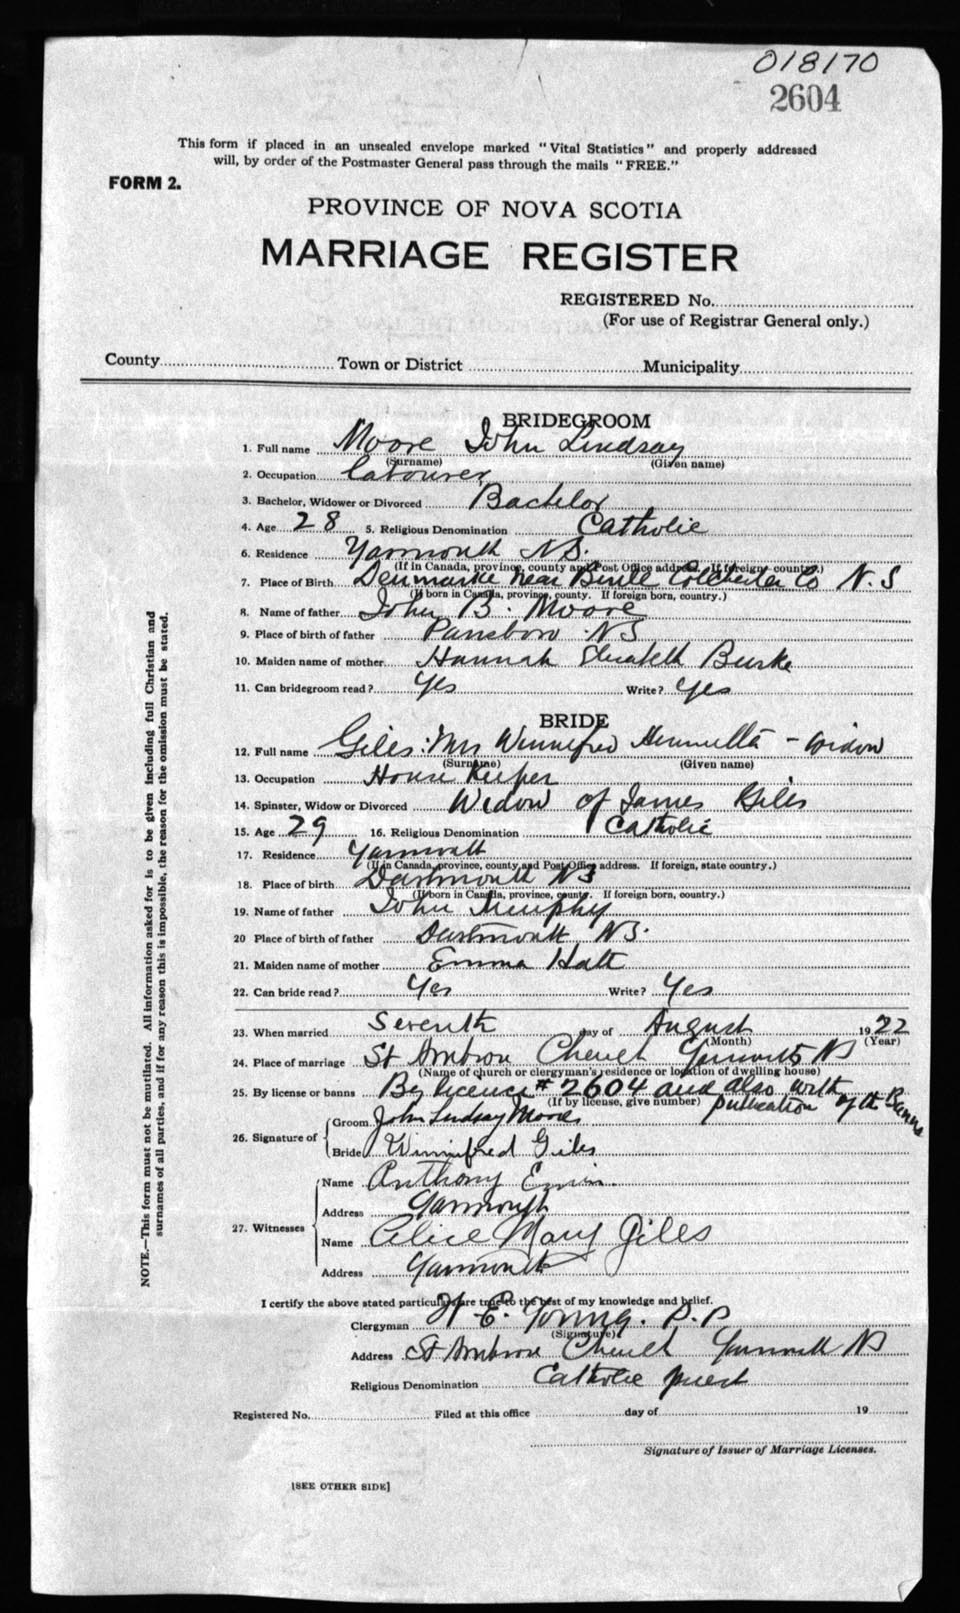 018170
2604
This form if placed in an unsealed envelope marked "Vital Statistics" and properly addressed
will, by order of the Postmaster General pass through the mails "FREE."
FORM 2.
PROVINCE OF NOVA SCOTIA
MARRIAGE REGISTER
REGISTERED No.
(For use of Registrar General only.)
County Town or District Municipality
BRIDEGROOM
1. Full name Moore John Lindsay
(Surname) (Given name)
2. Occupation Labourer
3. Bachelor, Widower or Divorced Bachelor
4. Age 28 5. Religious Denomination Catholic
6. Residence Yarmouth NS.
(If in Canada, province, county and Post Office address. If foreign country.)
7. Place of Birth Denmarke near Colchester Co N.S
(If born in Canada, province, county. If foreign born, country.)
8. Name of father John B. Moore
9. Place of birth of father Parrsboro NS
10. Maiden name of mother Hannah Elizabeth Burke
11. Can bridegroom read? Yes Write? Yes
BRIDE
12. Full name Giles: Mrs Winnifred Henrietta - widow
(Surname) (Given name)
13. Occupation House Keeper
14. Spinster, Widow or Divorced Widow of James Giles
15. Age 29 16. Religious Denomination Catholic
17. Residence Yarmouth
(If in Canada, province, county, and Post Office address. If foreign, state country.)
18. Place of birth Dartmouth NS
(If born in Canada, province, county. If foreign born, country.)
19. Name of father John Murphy
20 Place of birth of father Dartmouth NS.
21. Maiden name of mother Emma Hatt
22. Can bride read? Yes Write? Yes
23. When married Seventh day of August 1922
(Month) (Year)
24. Place of marriage St Ambrose Church Yarmouth NS
(Name of church or clergyman's residence or location of dwelling house)
25. By license or banns By licence # 2604 and also with
(If by license, give number) publication of the Banns
26. Signature of Groom John Lindsay Moore
Bride Winnifred Giles
27. Witnesses Name Anthony
Address Yarmouth
Name Alice Mary Giles
Address Yarmouth
I certify the above stated particulars are true to the best of my knowledge and belief.
Clergyman W. E. Young. P.P
(Signature)
Address St Ambrose Church Yarmouth NS
Religious Denomination Catholic priest
Registered No. Filed at this office day of 19
Signature of Issuer of Marriage Licenses.
[SEE OTHER SIDE]
NOTE.—This form must not be mutilated. All information asked for is to be given including full Christian and
surnames of all parties, and if for any reason this is impossible, the reason for the omission must be stated.